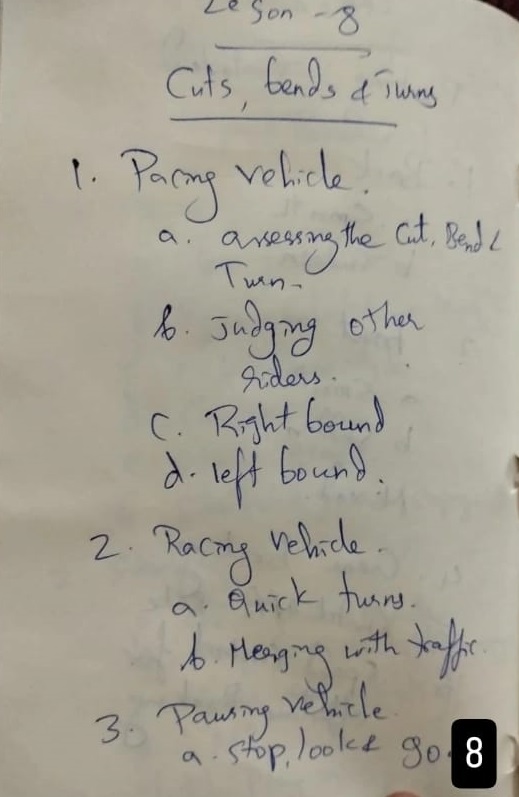 Lesson - 8
Cuts, bends & Turns
1. Pacing vehicle.
a. assessing the Cut, Bend &
Turn.
b. Judging other
riders.
c. Right bound
d. left bound.
2. Racing vehicle.
a. Quick turns.
b. Merging with traffic.
3. Pausing vehicle.
a. stop, look & go.
8